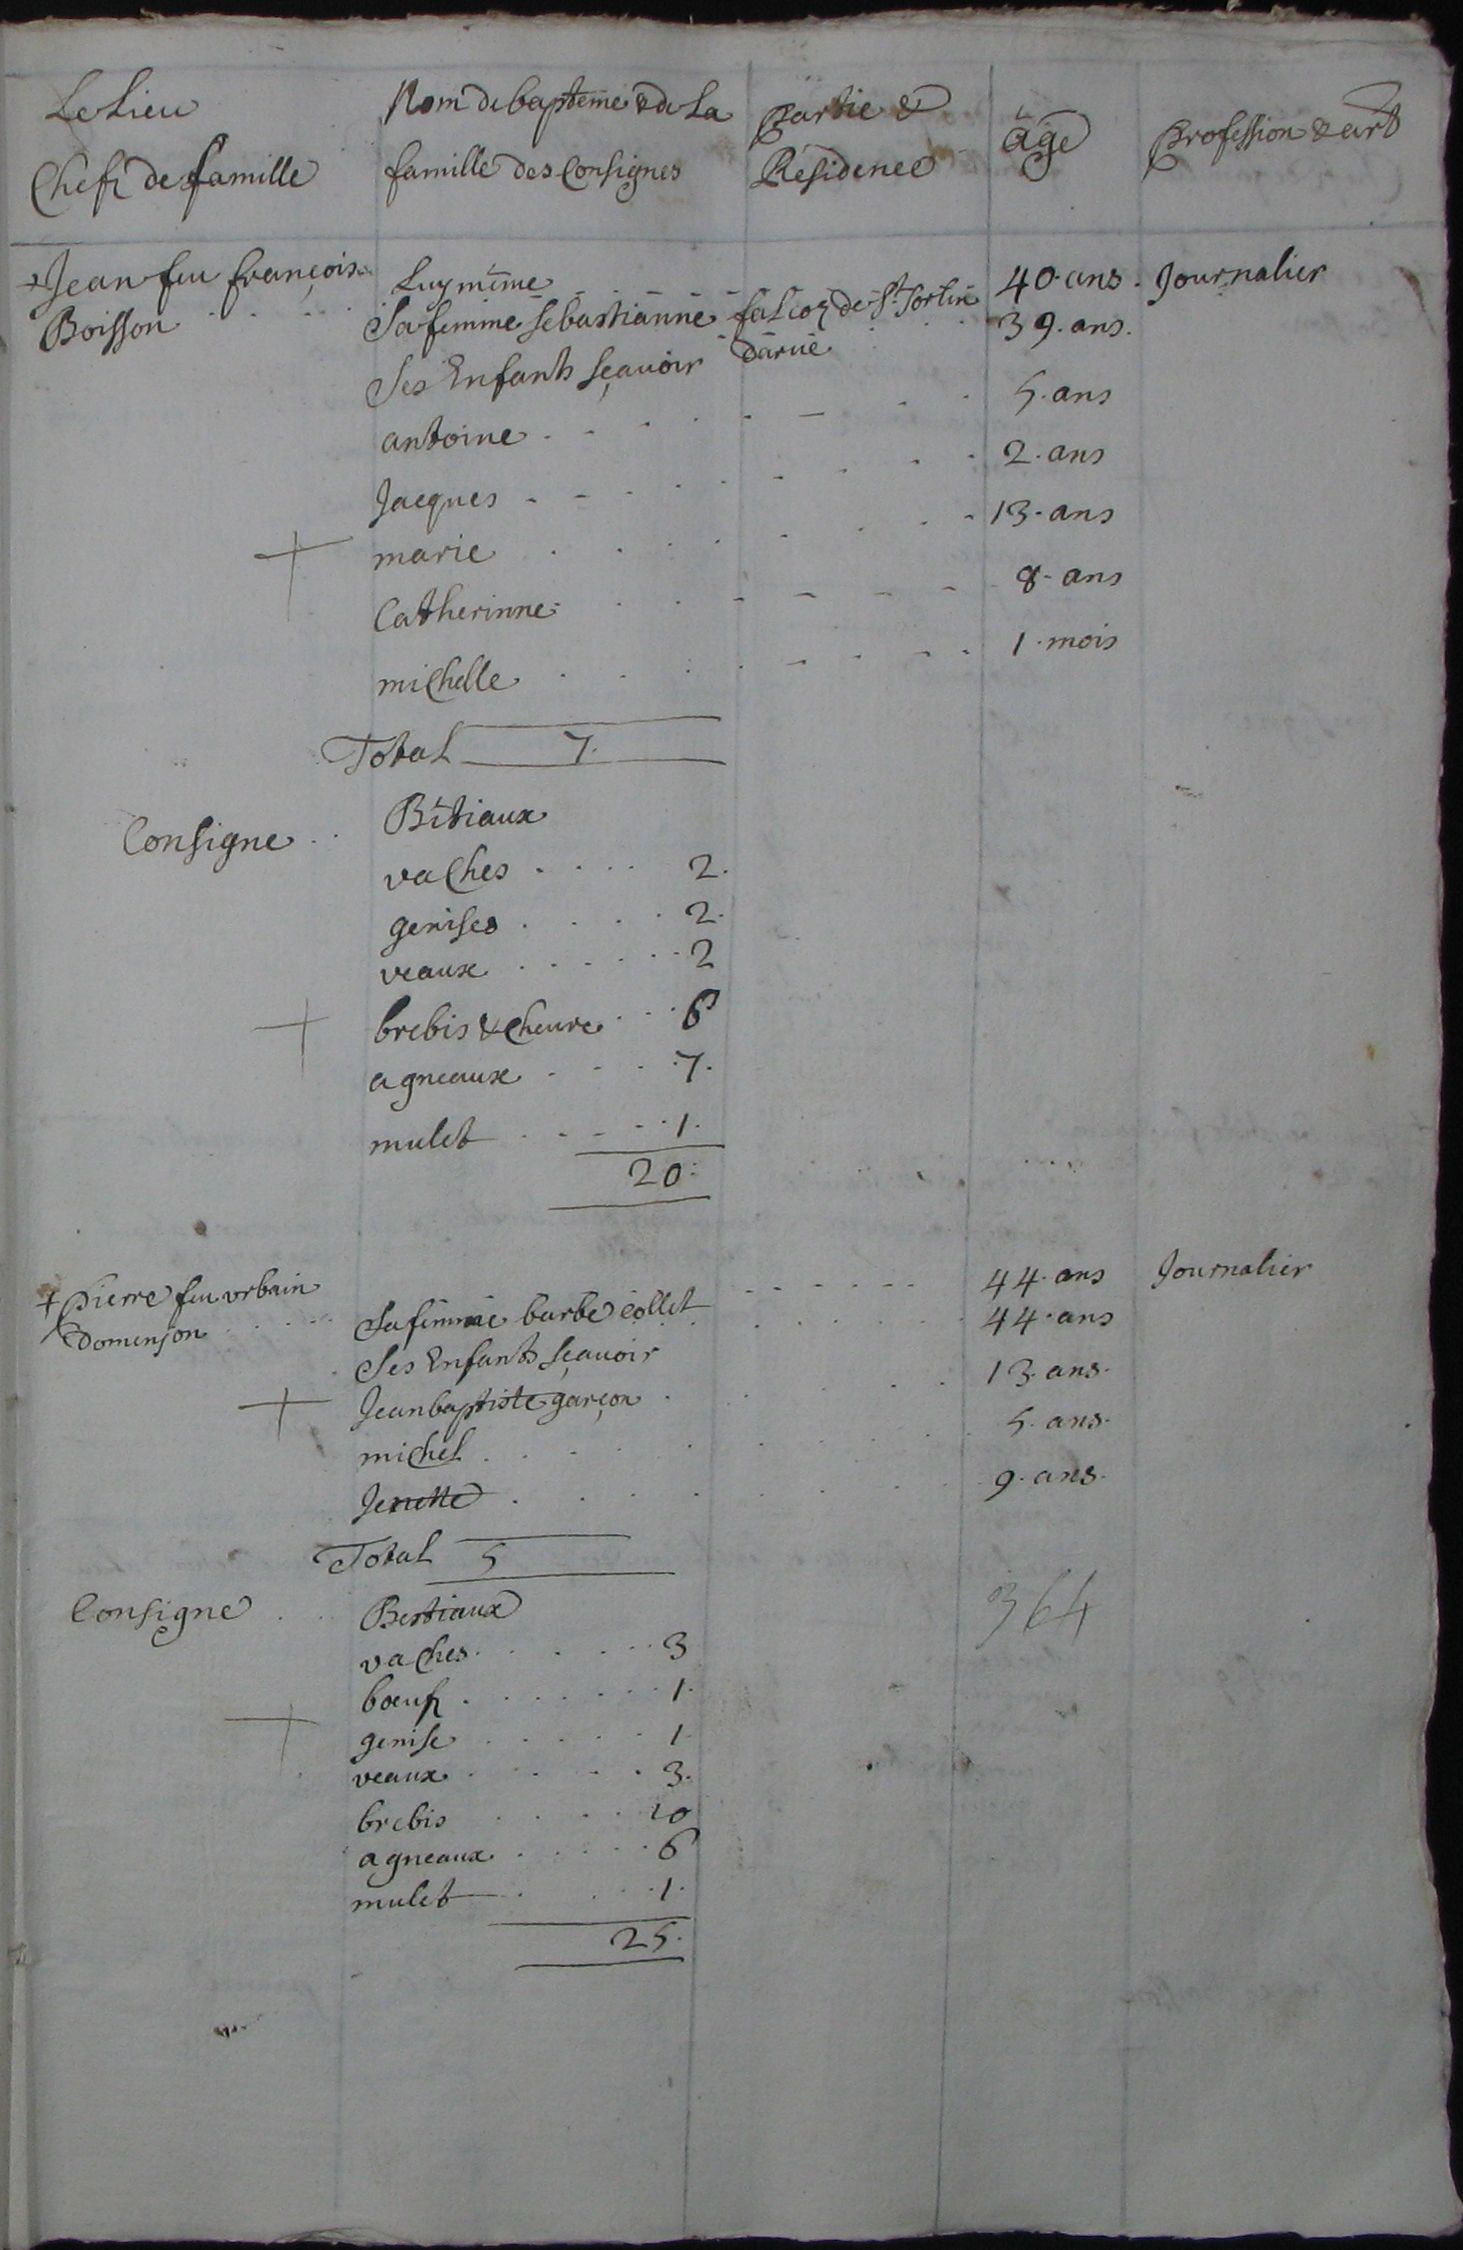 Le Lieu
Chefz de famille
Nom de bapteme & de La
famille des Consignes
Partie &
Residence
age
Profession & art
+ Jean feu françois
Boisson
Luy même
40 ans. Journalier
Sa femme sebastianne falcoz de St Sorlin
darue
39. ans.
Ses Enfants sçauoir
antoine
5. ans
Jacques
2. ans
+ marie
13. ans
Catherinne
8. ans
michelle
1. mois
Total 7.
Consigne
Bêtiaux
vaches 2.
genises 2.
veaux 2
+ brebis & cheure 6
agneaux 7.
mulet 1.
20.
+ Pierre feu vrbain
Domenjon
44. ans Journalier
Sa femme barbe collet 44. ans
Ses Enfants sçauoir
+ Jean baptiste garçon 13. ans.
michel 5. ans.
Jenette 9. ans.
Total 5
Consigne
Bestiaux
364
vaches 3
bœufz 1.
+ genise 1
veaux 3.
brebis 10
agneaux 6
mulet 1.
25.